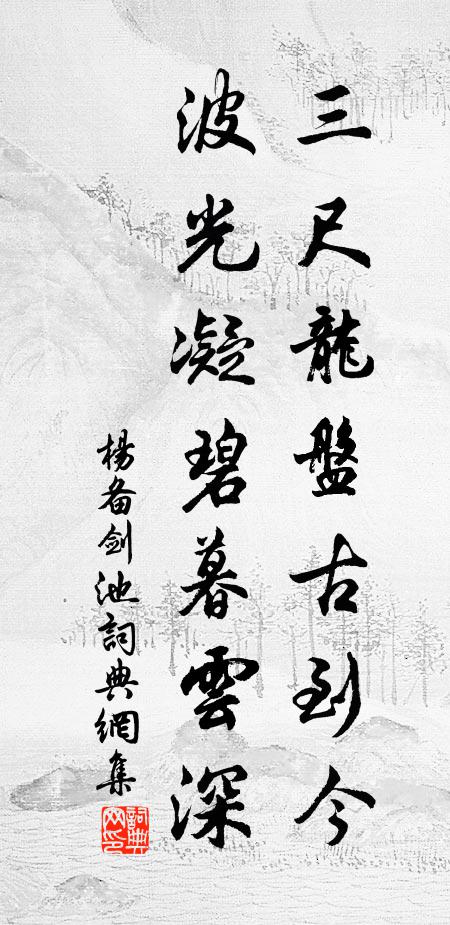 三尺龍盤古到今
波光凝碧暮雲深
楊备劍池詞典網集
詞典网印